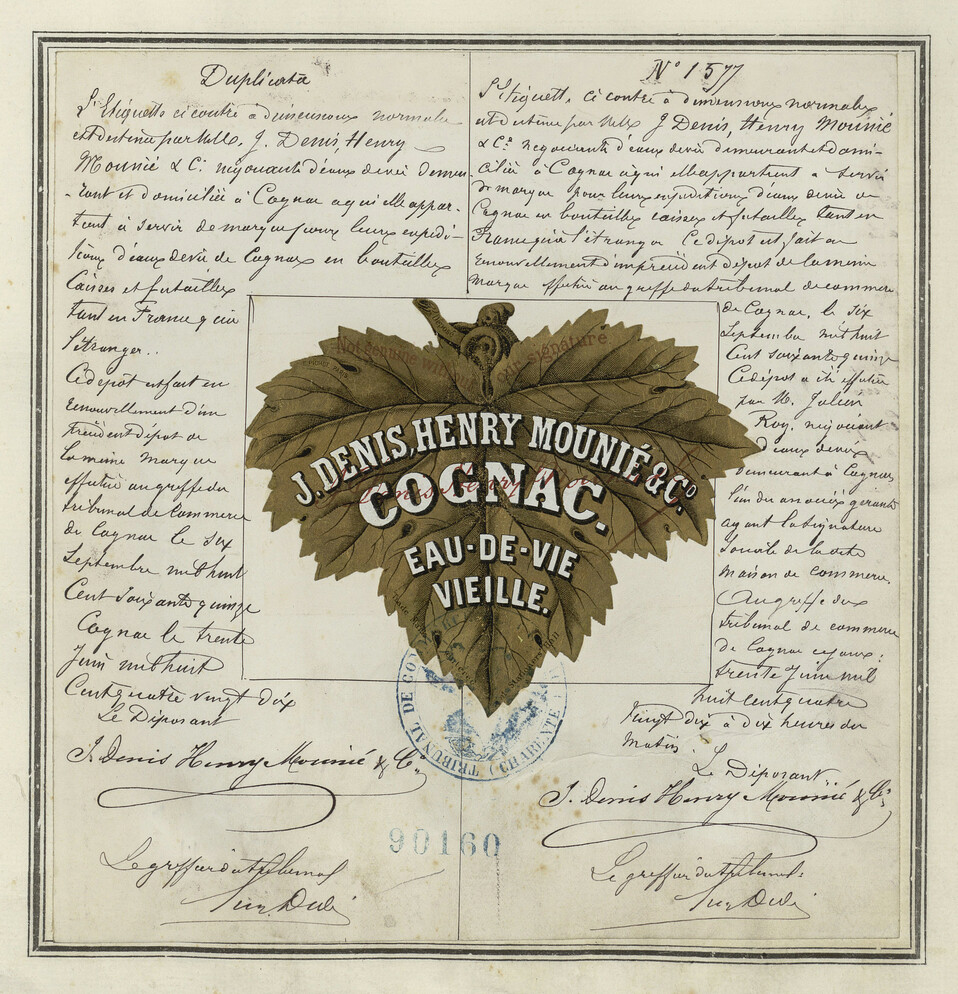 Duplicata
L'Etiquette ci contre a dimensions normales
est destinée par MM. J. Denis, Henry
Mounié & Cie négociants d'eaux de vie demeu-
rant et domiciliée à Cognac a qui elle appar-
tient à servir de marque pour leurs expédi-
tions d'eaux de vie de Cognac en bouteilles
Caisses et futailles
tant en France qu'a
l'étranger..
Ce dépôt est fait en
renouvellement d'un
précédent dépôt de
la même marque
effectué au greffe du
tribunal de Commerce
de Cognac le six
Septembre mil huit
Cent Soixante quinze
Cognac le trente
Juin mil huit
Cent quatre vingt dix
Le Déposant
J. Denis Henry Mounié & Cie
Le greffier du tribunal
N° 1577
L'Etiquette ci contre à dimensions normales
est destinée par MM. J Denis, Henry Mounié
& Cie négociants d'eaux de vie demeurant et domi-
ciliée à Cognac à qui elle appartient a servir
de marque pour leurs expéditions d'eaux de vie de
Cognac en bouteilles caisses et futailles tant en
France qu'a l'étranger Ce dépôt est fait en
renouvellement d'un précédent dépôt de la même
marque effectué au greffe du tribunal de commerce
de Cognac, le six
Septembre mil huit
Cent soixante quinze
Ce dépôt a été effectué
par M. Julien
Roy, négociant
d'eaux de vie
demeurant à Cognac
l'un des associés gérants
ayant la signature
sociale de la dite
maison de commerce.
Au greffe du
tribunal de commerce
de Cognac ce jour:
trente Juin mil
huit cent quatre
vingt dix à dix heures du
matin.
Le Déposant
J. Denis Henry Mounié & Cie
Le greffier du tribunal:
Not genuine without our signature
J. DENIS, HENRY MOUNIÉ & Cº
COGNAC.
EAU-DE-VIE
VIEILLE.
TRIBUNAL DE COM
(CHARENTE)
90160